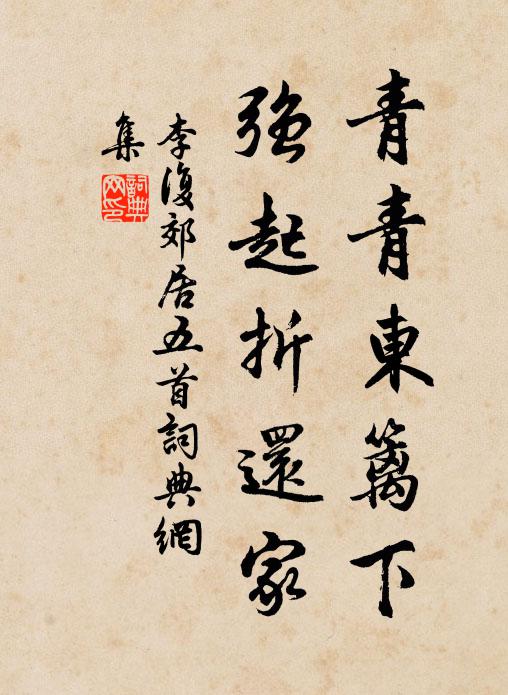 青青東籬下
強起折還家
李復郊居五首詞典網
集
詞典
网印